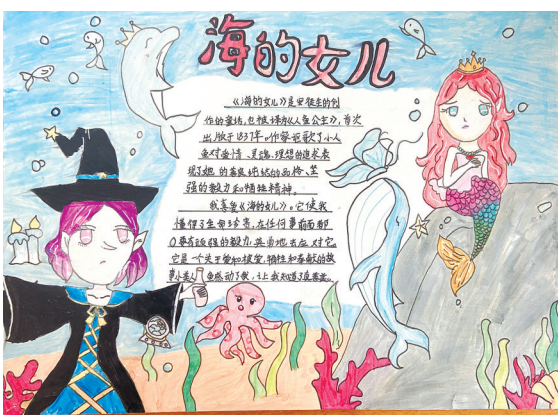 海的女儿
《海的女儿》是安徒生的创
作的童话,也被译为《人鱼公主》,首次
出版于1837年。作家歌歌了小人
鱼对爱情、灵魂、理想的追求表
现了她的善良纯洁的品格、坚
强的毅力和牺牲精神。
我喜爱《海的女儿》。它使我
懂得了生命珍贵,在任何事前面都
要有坚强的毅力,勇敢地去应对它。
它是一个关于爱和被爱,牺牲和奉献的故
事小美人鱼感动了我,让我知道了